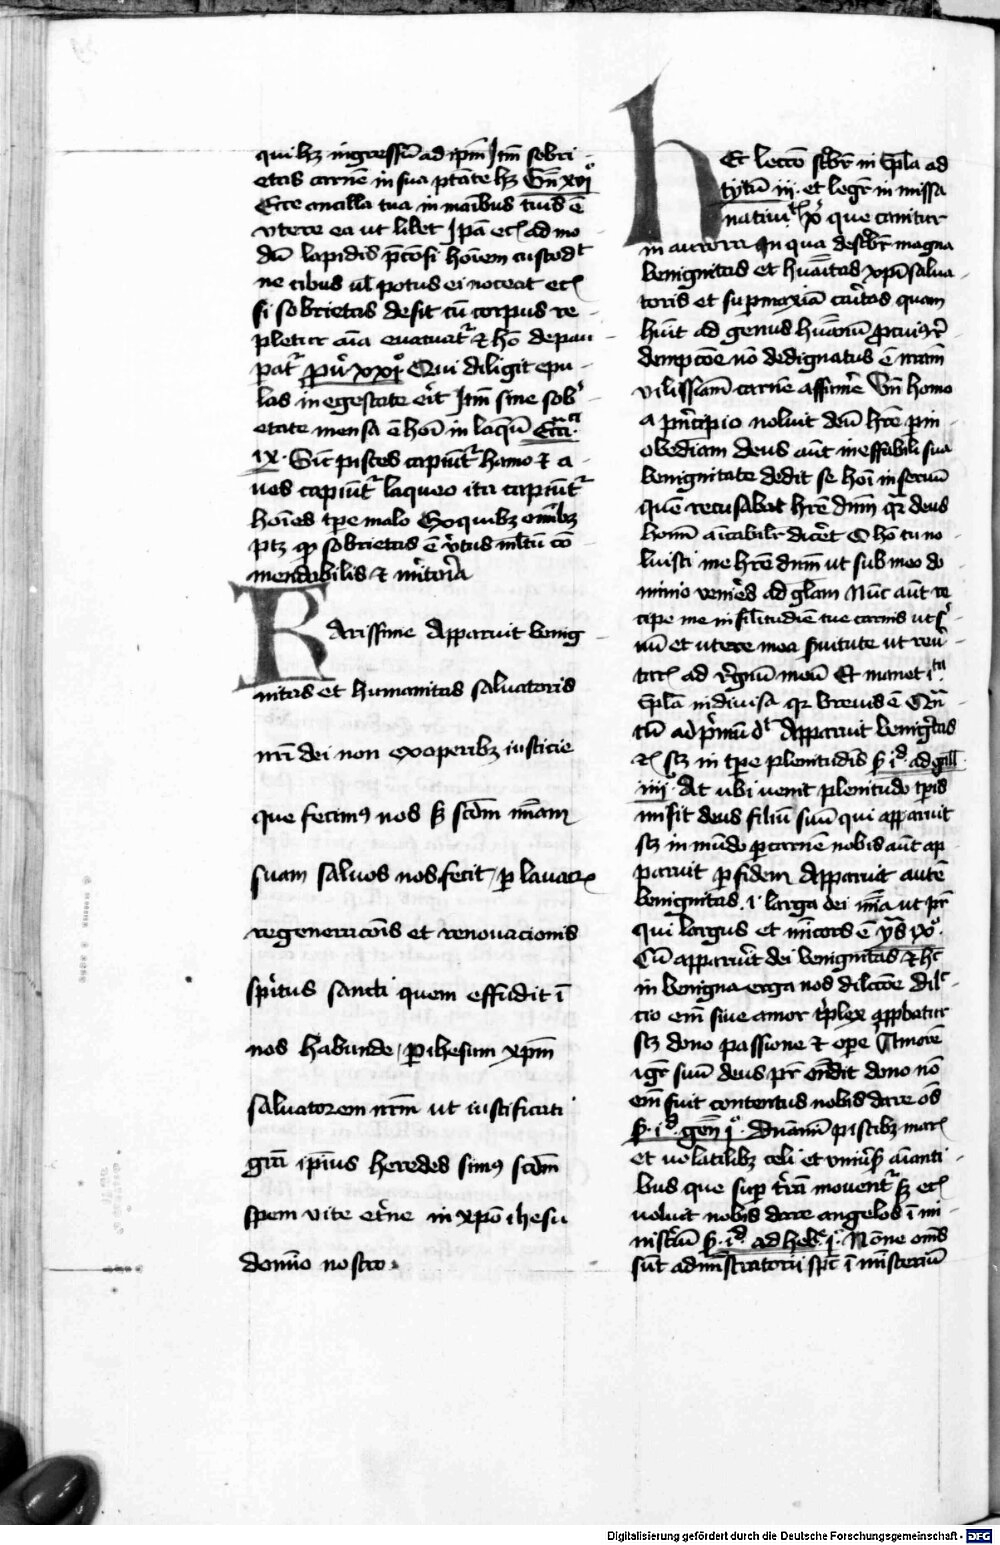 qui hz ingressū ad ipm Itm sobri
etas carnē in sua ptāte hz Gn̄ xvi
Ecce ancilla tua in manibus tuis ē
vtere ea ut libet Ipa etc ad mo
dū lapidis p̄cōsi hoīem custodit
ne cibus ul potus ei noceat etc
si sobrietas desit cū corpus re
pletur aīa euacuat̄ & hō depau
pat̄ puͬ xxiͦ Qui diligit epu
las in egestate erit Itm sine sobͥ
etate mensa ē hoī in laqūm Ecciͨⁱ
ix · Sic pisces capiūt̄ hamo & a
ues capiūt̄ laqueo ita capiūt̄
hoīes tpe malo Ex quibz omībz
ptz qͦ sobrietas ē vͥtus mltū cō
mendabilis & mͥitoͥa
Karissime Apparuit benig
nitas et humanitas saluatoris
nrī dei non ex operibz iusticie
que fecimꝰ nos sꝫ scdm mīam
suam saluos nos fecit / ꝑ lauacꝝ
regeneracōis et renouacionis
spͥitus sancti quem effudit ī
nos habunde / ꝑ ihesum xpm
saluatorem nrm ut iustificati
grā ipīus heredes simꝰ scdm
spem vite etͥne in xpō ihesu
domīo nostro
hEc leccō scbͥr in epla ad
tytū iii · et legr in missa
natiuitͭ xͥ que canitur
in aurora In qua descbͥr magna
benignitas et hūāitas xpī salua
toris et sup maxīa caͥtas quam
huit ad genus hūanū
dempcōe nō dedignatus ē nram
vilissīam carnē assūme Vn̄ homo
a pͥncipio noluit deū hr̄e ꝑ in
obediam deus aūt ineffabili sua
benignitate dedit se hoī in seruū
quē recusabat hr̄e dnm qr deus
homī aīcabilr dicēt O hō tu no
luisti me hr̄e dnm ut sub meo do
minio venīes ad glam Nūc aūt re
cipe me in silitudiē tue carnis ut sͥ
uū et utere mea suitute ut reuͥ
taͥs ad rͤgnū meū Et manet ista
epla indiuisa qr breuis ē Qn̄
tū ad pͥmū dͭ Apparuit benigͥtas
etc scz in tpe plenitudīs sꝫ iᵈ ad gall
iiii · At ubi venit plenitudo tpis
misit deus filiū suū qui apparuit
scz in mūdo ꝑ carnē nobis aūt ap
paruit ꝑ fidem Apparuit autē
benignitas · i · larga dei mīa ut pr̄
qui largus et mīcors ē ys ixͦ ·
Cū apparuit dei benignitas & hͨ
in benigna erga nos dilcōe Dilͨ
cio em̄ siue amor tͥplex ꝓbatur
scz dono passione & oꝑe Amorē
igr suū deus pr̄ ondit dono nō
em̄ fuit contentus nobis dare oīs
sꝫ · iᵈ · gen̄ iͦ · Dnamī piscibz maris
et volatilibz celi et vniuͥs aīanti
bus que suꝑ tͥra mouent̄ sꝫ etc
voluit nobis dare angelos ī mi
nistͥiū sꝫ · iᵈ · ad hebͤ iͦ · Nōne om̄s
sūt admīstratorii spc ī mīsteriū